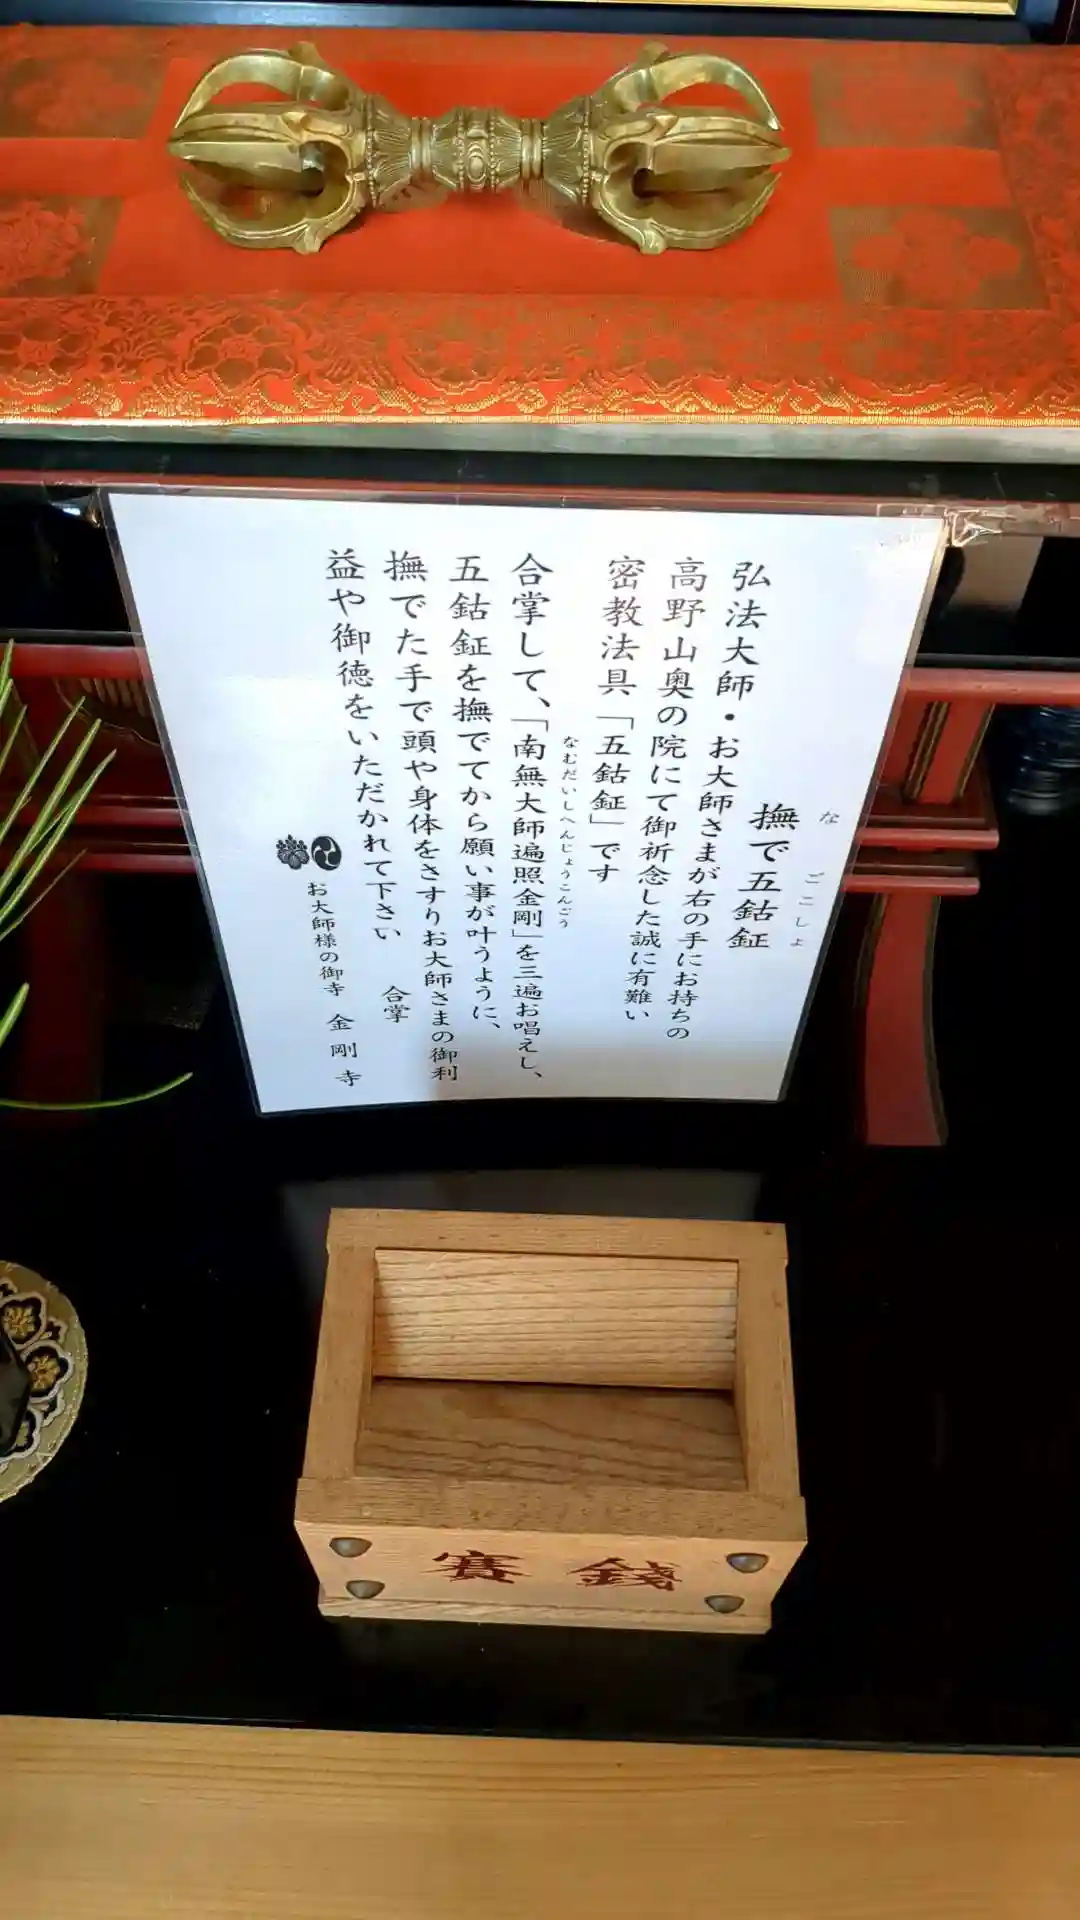 撫で五鈷鉦
な
ごこしよ
弘法大師・お大師さまが右の手にお持ちの
高野山奥の院にて御祈念した誠に有難い
密教法具「五鈷鉦」です
なむだいしへんじょうこんごう
合掌して、「南無大師遍照金剛」を三遍お唱えし、
五鈷鉦を撫でてから願い事が叶うように、
撫でた手で頭や身体をさすりお大師さまの御利
益や御徳をいただかれて下さい
合掌
お大師様の御寺 金剛寺
賽錢